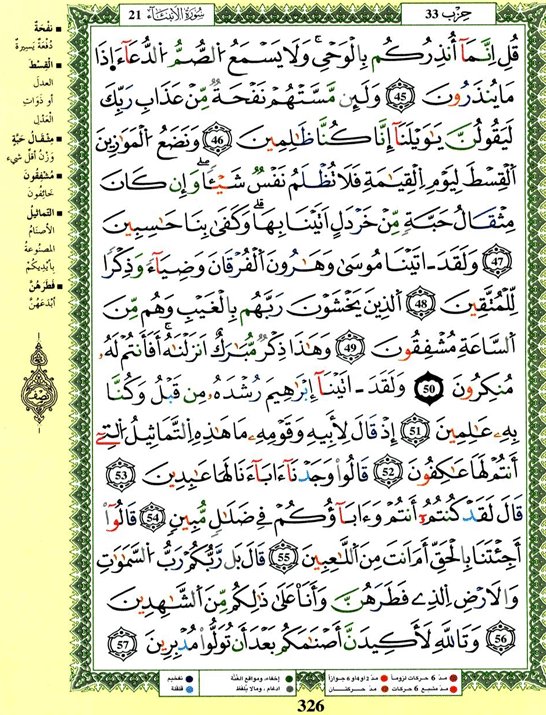 حِزْب 33
سُورَةُ الأَنبِيَاءِ 21
قُلِ اِنَّمَآ أُنذِرُكُم بِالْوَحْيِ وَلَا يَسْمَعُ الصُّمُّ الدُّعَآءَ اِذَا
مَا يُنذَرُونَ 45 وَلَئِن مَّسَّتْهُمْ نَفْحَةٌ مِّنْ عَذَابِ رَبِّكَ
لَيَقُولُنَّ يَٰوَيْلَنَآ إِنَّا كُنَّا ظَٰلِمِينَ 46 وَنَضَعُ الْمَوَٰزِينَ
الْقِسْطَ لِيَوْمِ الْقِيَٰمَةِ فَلَا تُظْلَمُ نَفْسٌ شَيْـًٔا وَإِن كَانَ
مِثْقَالُ حَبَّةٍ مِّنْ خَرْدَلٍ اَتَيْنَا بِهَا وَكَفَىٰ بِنَا حَٰسِبِينَ
47 وَلَقَدَ ـ اتَيْنَا مُوسَىٰ وَهَٰرُونَ الْفُرْقَانَ وَضِيَآءً وَذِكْرًا
لِّلْمُتَّقِينَ 48 الَّذِينَ يَخْشَوْنَ رَبَّهُم بِالْغَيْبِ وَهُم مِّنَ
السَّاعَةِ مُشْفِقُونَ 49 وَهَٰذَا ذِكْرٌ مُّبَٰرَكٌ اَنزَلْنَٰهُ أَفَأَنتُمْ لَهُۥ
مُنكِرُونَ 50 وَلَقَدَ ـ اتَيْنَآ إِبْرَٰهِيمَ رُشْدَهُۥ مِن قَبْلُ وَكُنَّا
بِهِۦ عَٰلِمِينَ 51 إِذْ قَالَ لِأَبِيهِ وَقَوْمِهِۦ مَا هَٰذِهِ التَّمَاثِيلُ الَّتِے
أَنتُمْ لَهَا عَٰكِفُونَ 52 قَالُوا وَجَدْنَآ ءَابَآءَنَا لَهَا عَٰبِدِينَ 53
قَالَ لَقَدْ كُنتُمُۥٓ أَنتُمْ وَءَابَآؤُكُمْ فِے ضَلَٰلٍ مُّبِينٍ 54 قَالُوٓا
أَجِئْتَنَا بِالْحَقِّ أَمَ اَنتَ مِنَ اللَّٰعِبِينَ 55 قَالَ بَل رَّبُّكُمْ رَبُّ السَّمَٰوَٰتِ
وَالَارْضِ الَّذِے فَطَرَهُنَّ وَأَنَا عَلَىٰ ذَٰلِكُم مِّنَ الشَّٰهِدِينَ
56 وَتَاللَّهِ لَأَكِيدَنَّ أَصْنَٰمَكُم بَعْدَ أَن تُوَلُّوا مُدْبِرِينَ 57
■ نَفْحَةٌ
دُفْعَةٌ يَسِيرَةٌ
■ الْقِسْطَ
العدلَ
أو ذَوَاتِ
العَدْلِ
■ مِثْقَالُ حَبَّةٍ
وَزْنُ أقلّ شيء
■ مُشْفِقُونَ
خَائِفُونَ
■ التَّمَاثِيلُ
الأصنَامُ
المصنُوعةُ
بأيْدِيكُمْ
■ فَطَرَهُنَّ
أَبْدَعَهُنَّ
نصف
مدّ 6 حركات لزوما ● مدّ 2 أو 4 أو 6 جوازا ● إخفاء، ومواقع الغُنَّة ● تفخيم
مدّ مشبع 6 حركات ● مدّ حركتان ● ادغام، وما لا يُلفَظ ● قلقلة
326